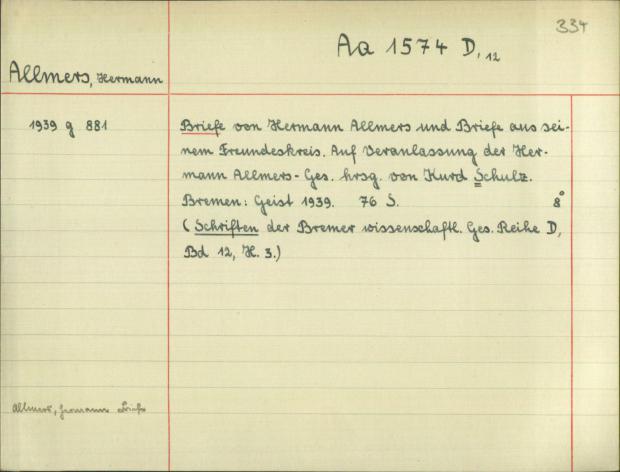 334
Aa 1574 D, 12
Allmers, Hermann
1939 g 881
Briefe von Hermann Allmers und Briefe aus sei-
nem Freundeskreis. Auf Veranlassung der Her-
mann Allmers-Ges. hrsg. von Kurd Schulz.
Bremen: Geist 1939. 76 S. 8°
(Schriften der Bremer wissenschaftl. Ges. Reihe D,
Bd 12, H. 3.)
Allmers, Hermann Briefe